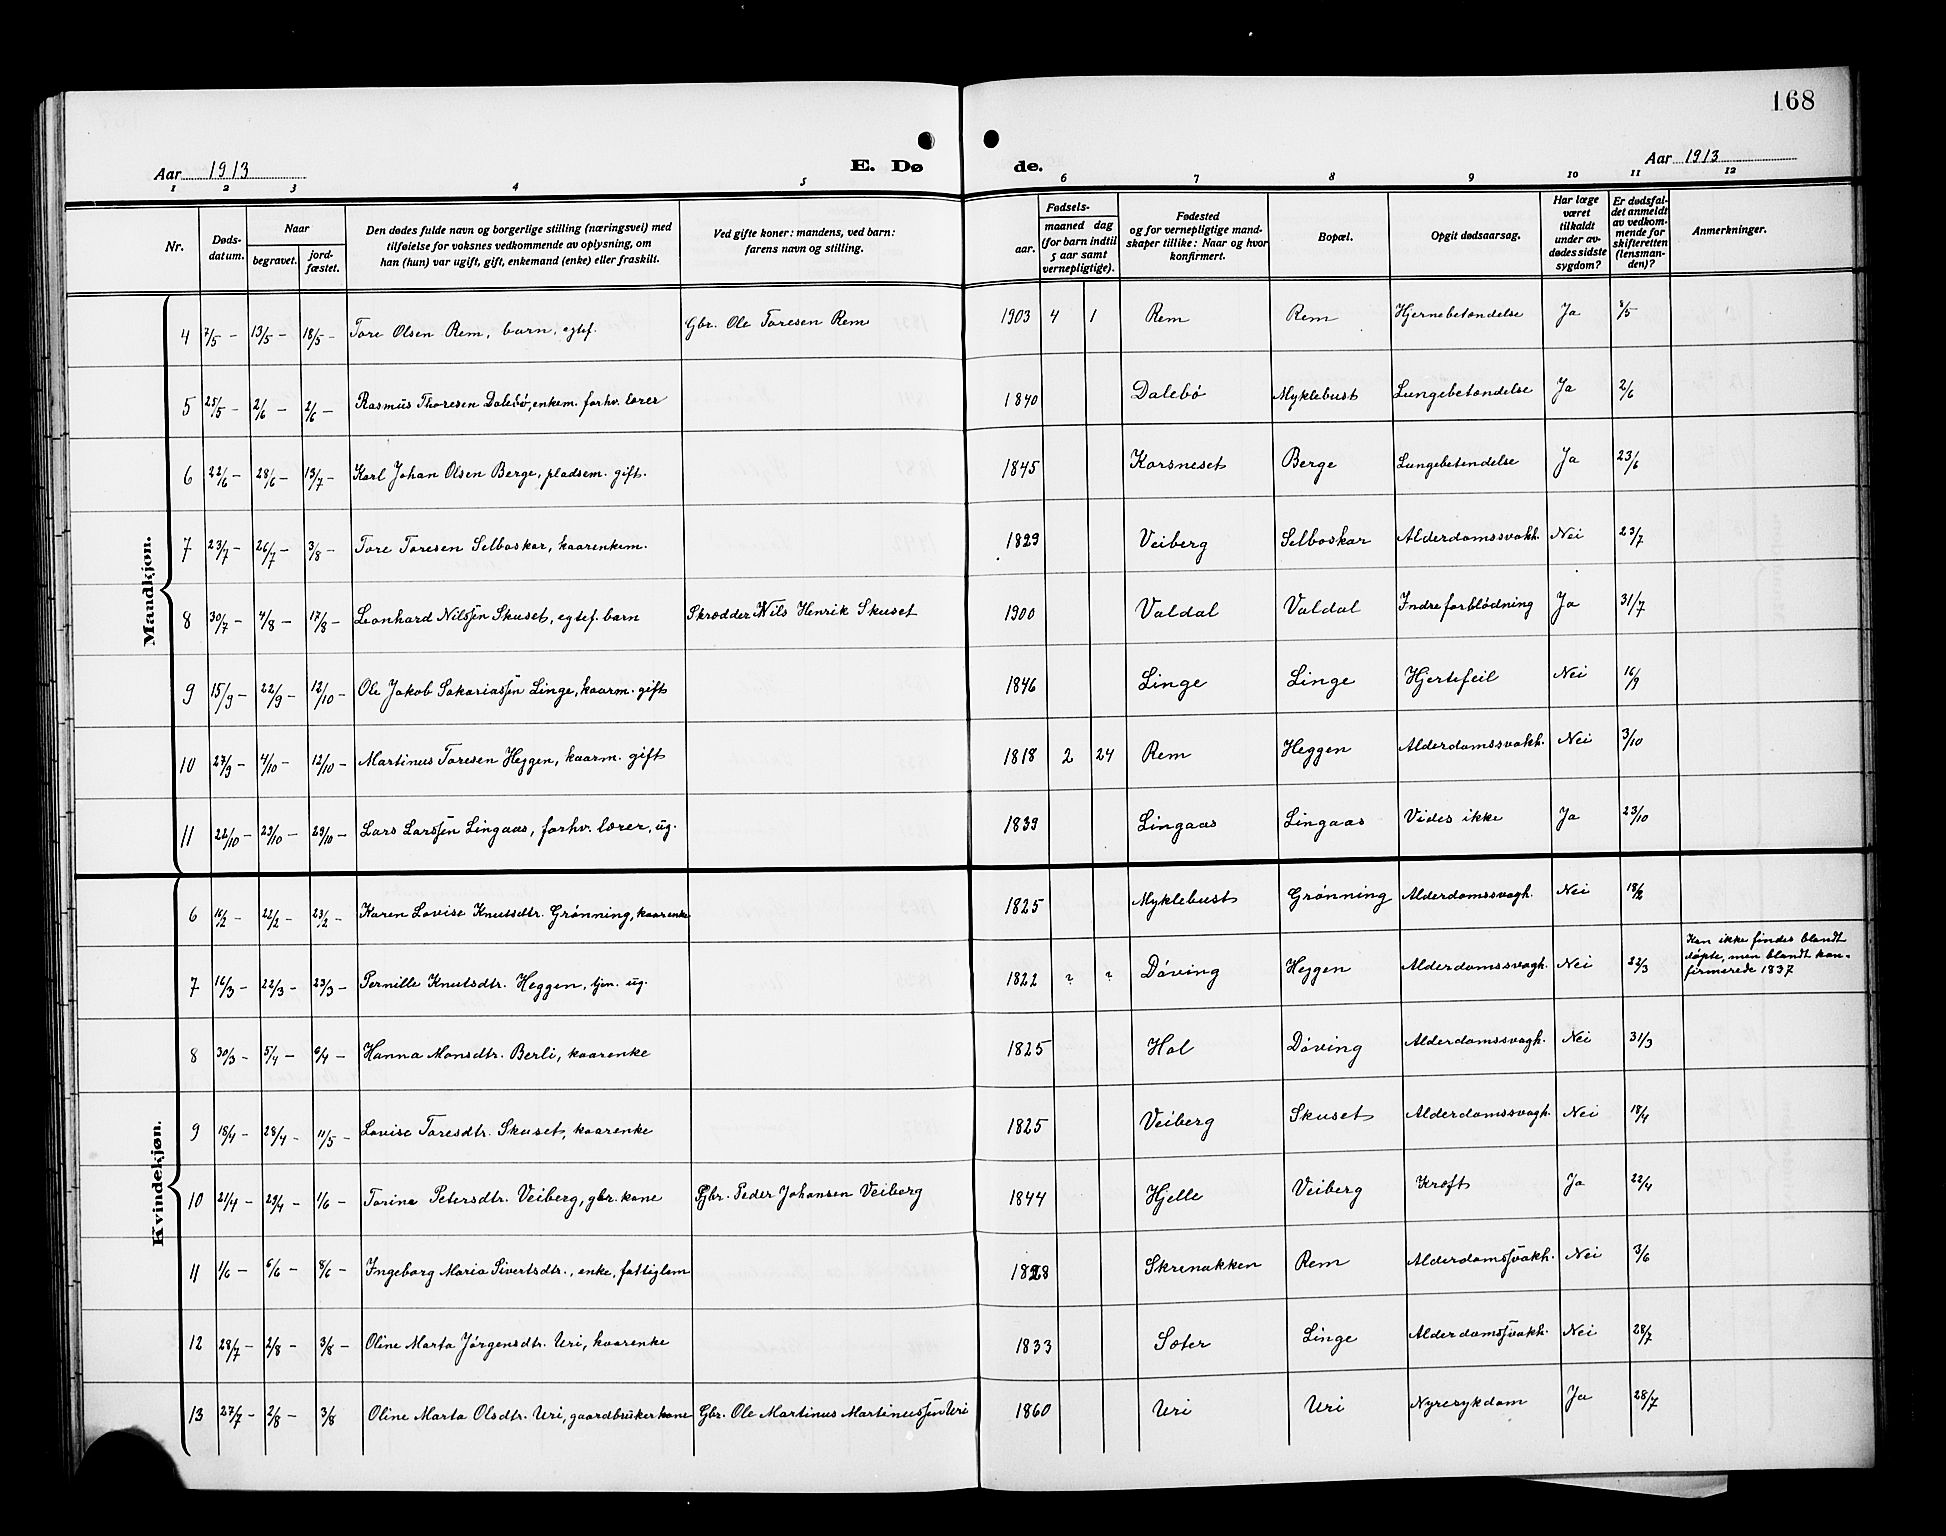 168
Aar 1913
E. Dø
de.
Aar 1913
1 2 3 4 5 6 7 8 9 10 11 12
Nr.
Døds-
datum.
Naar
begravet.
jord-
fæstet.
Den dødes fulde navn og borgerlige stilling (næringsvei) med
tilføielse for voksnes vedkommende av oplysning, om
han (hun) var ugift, gift, enkemand (enke) eller fraskilt.
Ved gifte koner: mandens, ved barn:
farens navn og stilling.
Fødsels-
aar.
maaned dag
(for barn indtil
5 aar samt
vernepligtige).
Fødested
og for vernepligtige mand-
skaper tillike: Naar og hvor
konfirmert.
Bopæl.
Opgit dødsaarsag.
Har læge
været
tilkaldt
under av-
dødes sidste
sygdom?
Er dødsfal-
det anmeldt
av vedkom-
mende for
skifteretten
(lensman-
den)?
Anmerkninger.
Mandkjøn.
4 7/5 – 13/5 – 18/5 – Tore Olsen Rem, barn, egtef. Gbr. Ole Toresen Rem 1903 4 1 Rem Rem Hjernebetændelse Ja 8/5
5 25/5 – 2/6 – 2/6 – Rasmus Thoresen Dalebø, enkem. forhv. lærer 1840 Dalebø Myklebust Lungebetændelse Ja 2/6
6 22/6 – 28/6 – 13/7 – Karl Johan Olsen Berge, pladsem. gift. 1845 Korsneset Berge Lungebetændelse Ja 23/6
7 23/7 – 26/7 – 3/8 – Tore Toresen Selboskar, kaarenkem. 1829 Veiberg Selboskar Alderdomssvakh. Nei 23/7
8 30/7 – 4/8 – 17/8 – Leonhard Nilssen Skuset, egtef. barn Skrædder Nils Henrik Skuset 1900 Valdal Valdal Indre forblødning Ja 31/7
9 15/9 – 22/9 – 12/10 – Ole Jakob Sakariassen Linge, kaarm. gift 1846 Linge Linge Hjertefeil Nei 16/9
10 27/9 – 4/10 – 12/10 – Martinus Toresen Heggen, kaarm. gift 1818 2 24 Rem Heggen Alderdomssvakh. Nei 3/10
11 22/10 – 29/10 – 29/10 – Lars Larssen Lingaas, forhv. lærer, ug. 1839 Lingaas Lingaas Vides ikke Ja 23/10
Kvindekjøn.
6 16/2 – 22/2 – 23/2 – Karen Lovise Knutsdtr. Grønning, kaarenke 1825 Myklebust Grønning Alderdomssvagh. Nei 18/2
7 16/3 – 22/3 – 23/3 – Pernille Knutsdtr. Heggen, tjen. ug. 1822 ? ? Døving Heggen Alderdomssvagh. Nei 22/3 Kan ikke findes blandt
døpte, men blandt kon-
firmerede 1837
8 30/3 – 5/4 – 6/4 – Hanna Monsdtr. Berli, kaarenke 1825 Hol Døving Alderdomssvagh. Nei 31/3
9 18/4 – 28/4 – 11/5 – Lovise Toresdtr. Skuset, kaarenke 1825 Veiberg Skuset Alderdomssvagh. Nei 18/4
10 21/4 – 29/4 – 1/6 – Torina Petersdtr. Veiberg, gbr. kone Gbr. Peder Johansen Veiberg 1844 Hjelle Veiberg Kræft Ja 22/4
11 1/6 – 6/6 – 8/6 – Ingeborg Maria Sivertsdtr., enke, fattiglem 1828 Skrenakken Rem Alderdomssvakh. Nei 3/6
12 28/7 – 2/8 – 3/8 – Oline Marta Jørgensdtr. Uri, kaarenke 1833 Sæter Linge Alderdomssvakh. Nei 28/7
13 27/7 – 2/8 – 3/8 Oline Marta Olsdtr. Uri, gaardbrukerkone Gbr. Ole Martinus Martinussen Uri 1860 Uri Uri Nyresykdom Ja 28/7